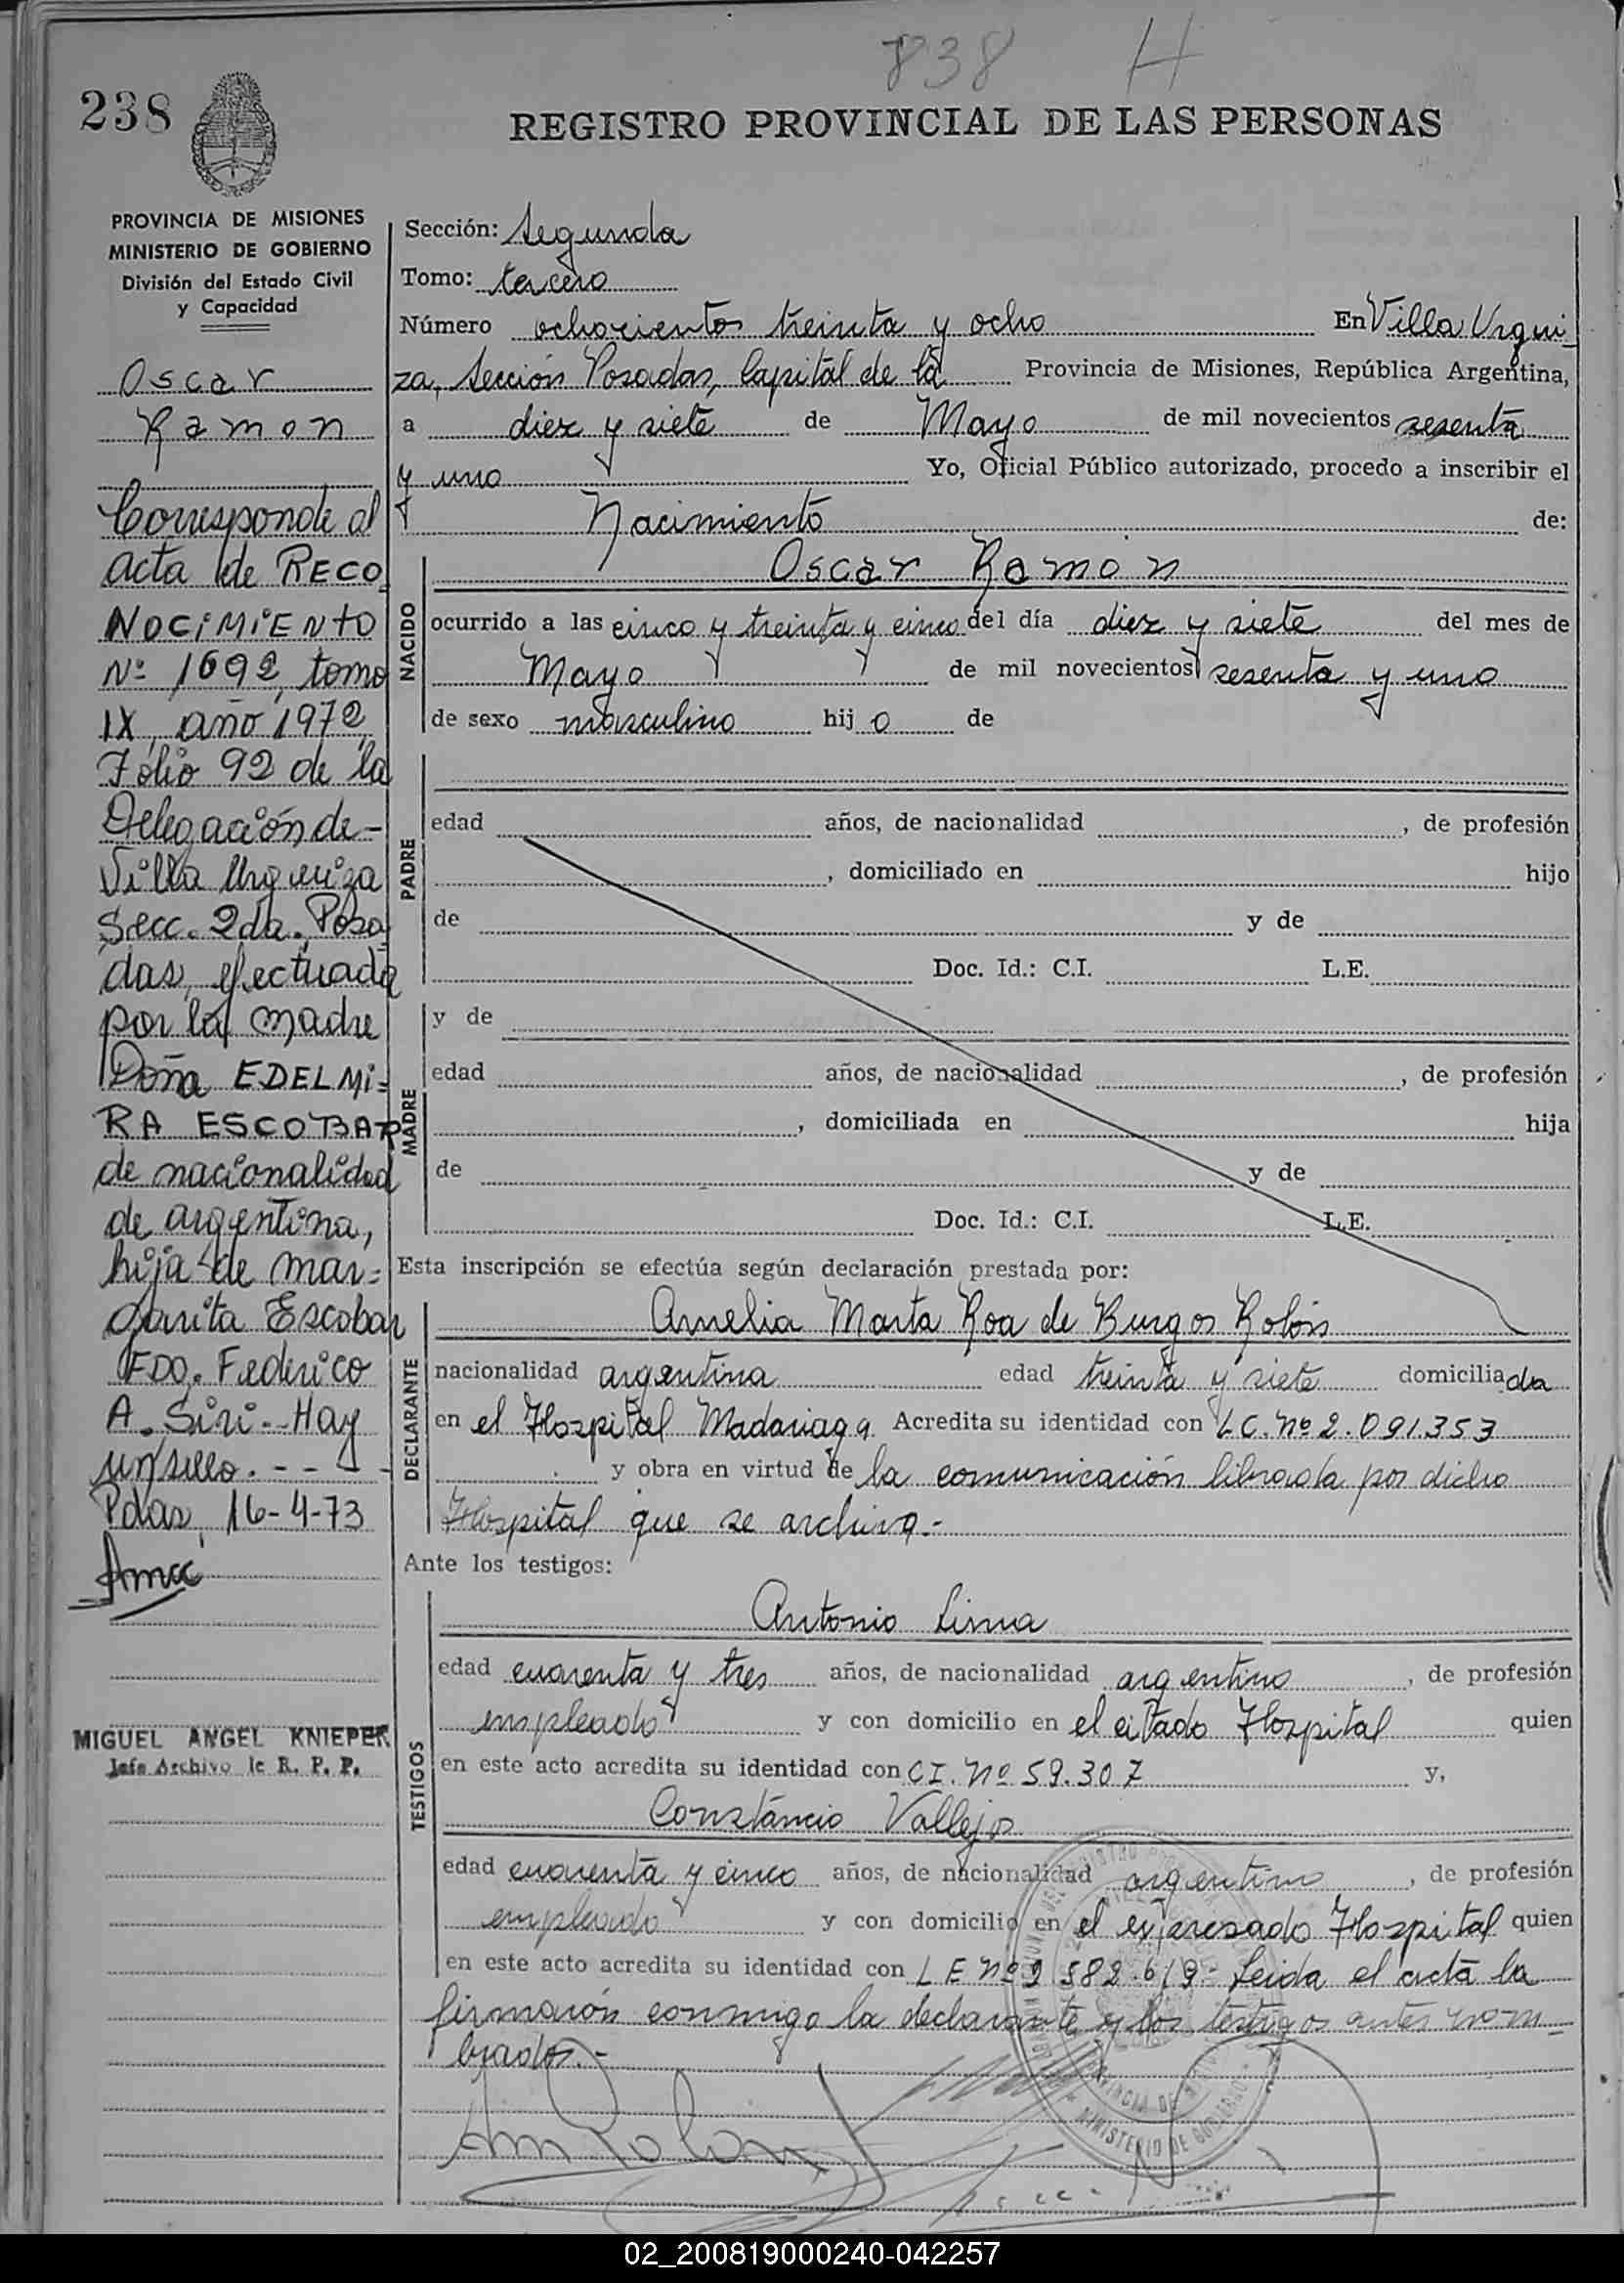 838 H
238
REGISTRO PROVINCIAL DE LAS PERSONAS
PROVINCIA DE MISIONES
MINISTERIO DE GOBIERNO
División del Estado Civil
y Capacidad
Oscar
Ramon
Corresponde al
acta de RECO
NOCIMIENTO
Nº 1692, tomo
IX, año 1972,
Folio 92 de la
Delegación de-
Villa Urquiza
Secc. 2da. Posa
das, efectuada
por la madre
Doña EDELMI=
RA ESCOBAR
de nacionalidad
de argentina,
hija de mar=
garita Escobar
FDO. Federico
A. Siri.- Hay
un sello.---
Pdas, 16-4-73
MIGUEL ANGEL KNIEPER
Jefe Archivo R. P. P.
Sección: Segunda
Tomo: tercero
Número ochocientos treinta y ocho En Villa Urqui
za, Sección Posadas, Capital de la Provincia de Misiones, República Argentina,
a diez y siete de Mayo de mil novecientos sesenta
y uno Yo, Oficial Público autorizado, procedo a inscribir el
Nacimiento de:
NACIDO
Oscar Ramón
ocurrido a las cinco y treinta y cinco del día diez y siete del mes de
Mayo de mil novecientos sesenta y uno
de sexo masculino hij o de
PADRE
edad años, de nacionalidad , de profesión
, domiciliado en hijo
de y de
Doc. Id.: C.I. L.E.
MADRE
y de
edad años, de nacionalidad , de profesión
, domiciliada en hija
de y de
Doc. Id.: C.I. L.E.
Esta inscripción se efectúa según declaración prestada por:
DECLARANTE
Amelia Marta Roa de Burgos Rolón
nacionalidad argentina edad treinta y siete domicilia da
en el Hospital Madariaga Acredita su identidad con L C. Nº 2.091.353
y obra en virtud de la comunicación librada por dicho
Hospital que se archiva.-
Ante los testigos:
TESTIGOS
Antonio Lima
edad cuarenta y tres años, de nacionalidad argentino , de profesión
empleado y con domicilio en el citado Hospital quien
en este acto acredita su identidad con C I. Nº 59.307 y,
Constáncio Vallejos
edad cuarenta y cinco años, de nacionalidad argentino , de profesión
empleado y con domicilio en el expresado Hospital quien
en este acto acredita su identidad con L E Nº 9 582.619- Leida el acta la
firmarón conmigo la declarante y los testigos antes nom-
brados.-
PROVINCIA DE
MINISTERIO DE GOBIERNO
02_200819000240-042257